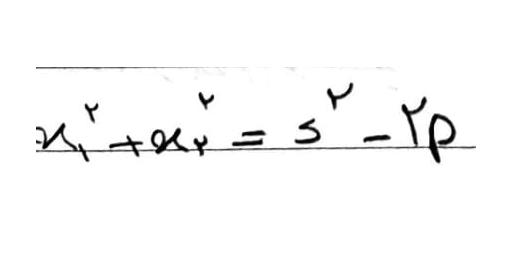 x₁^۲ + x₂^۲ = s^۲ - ۲p